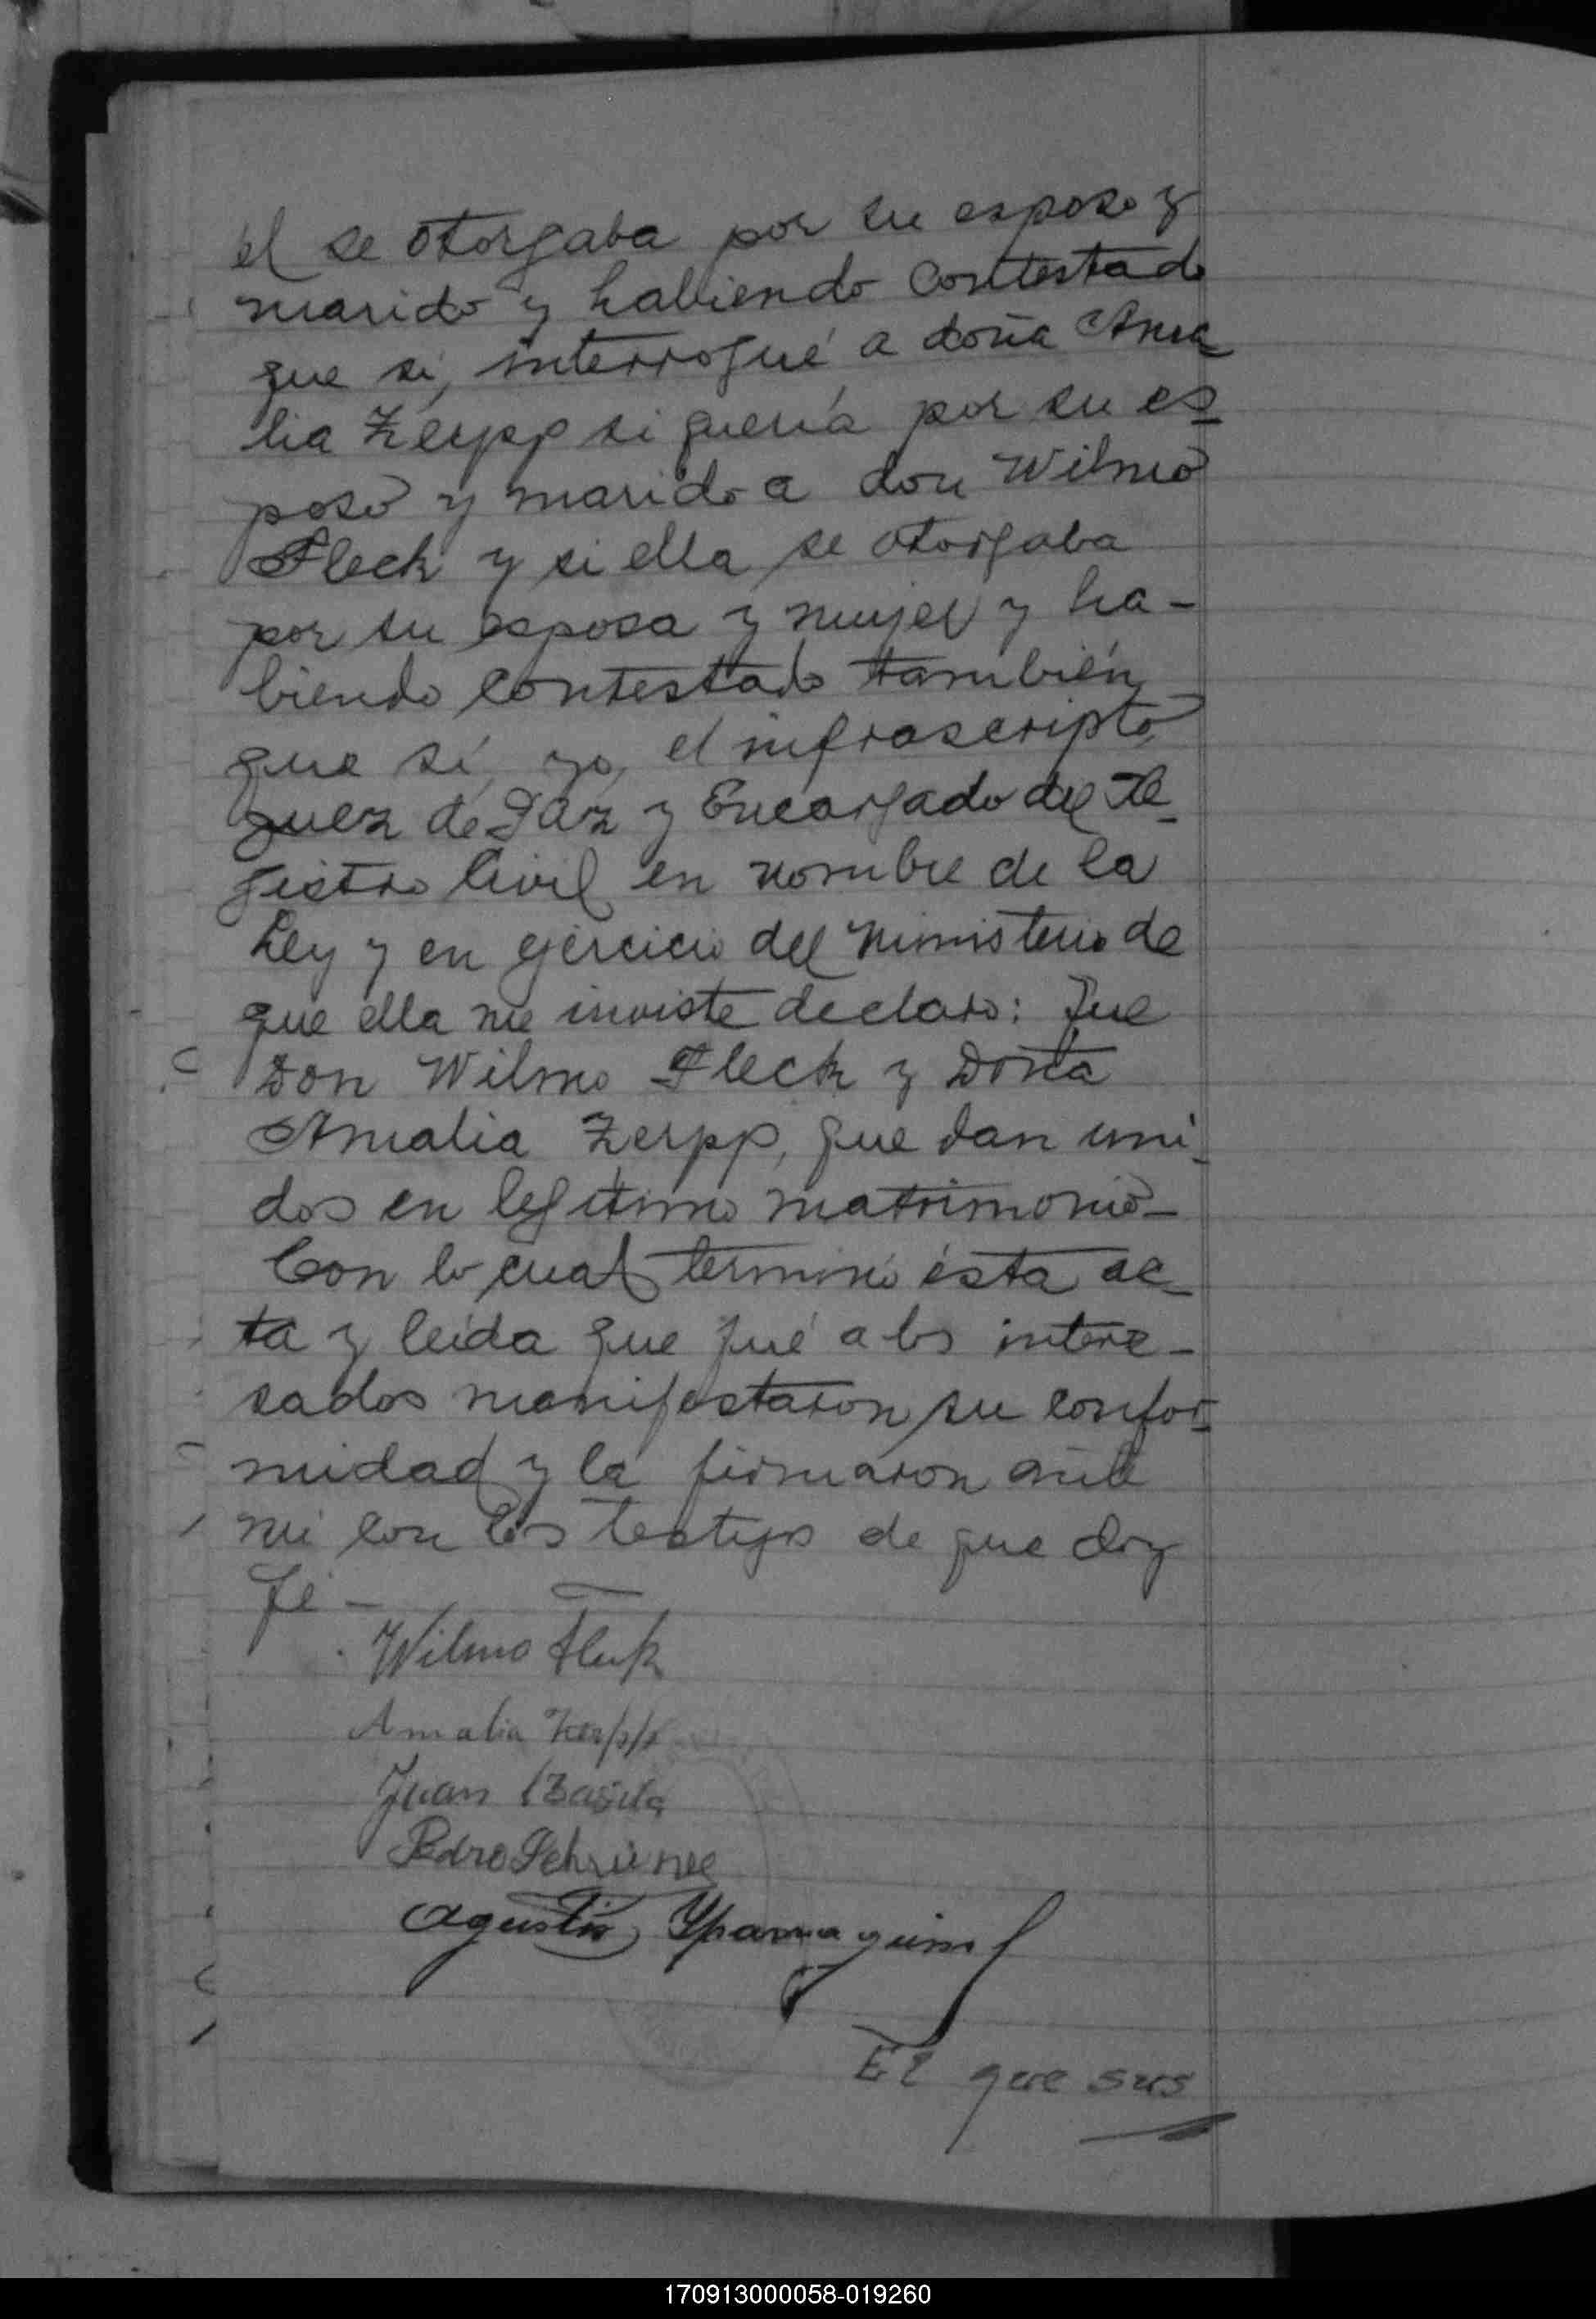 el se otorgaba por su esposo y
marido y habiendo contestado
que si, interrogué a doña Ama
lia Zerpp si quería por su es
poso y marido a don Wilmo
Fleck y si ella se otorgaba
por su esposa y mujer y ha-
biendo contestado también
que sí, yo, el infrascripto,
Juez de Paz y Encargado del Re
gistro Civil en nombre de la
Ley y en ejercicio del ministerio de
que ella me inviste declaro: Que
Don Wilmo Fleck y Doña
Amalia Zerpp, que dan uni
dos en legitimo matrimonio-
Con lo cual terminó ésta ac
ta y leída que fué a los intere-
sados manifestaron su confor
midad y la firmaron ante
mi con los testigos de que doy
fé-
Wilmo Fleck
Amalia Zerpp
Juan
Pedro
Agustin
El que sus
170913000058-019260